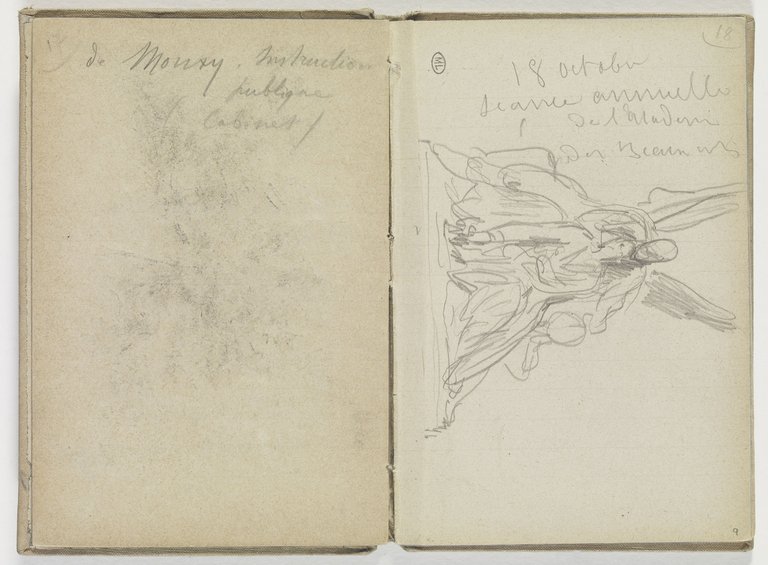 de Mouxy. Instruction
publique
Cabinet /
18
ML
18 octobre
séance annuelle
de l'Academi
des Beaux arts
9